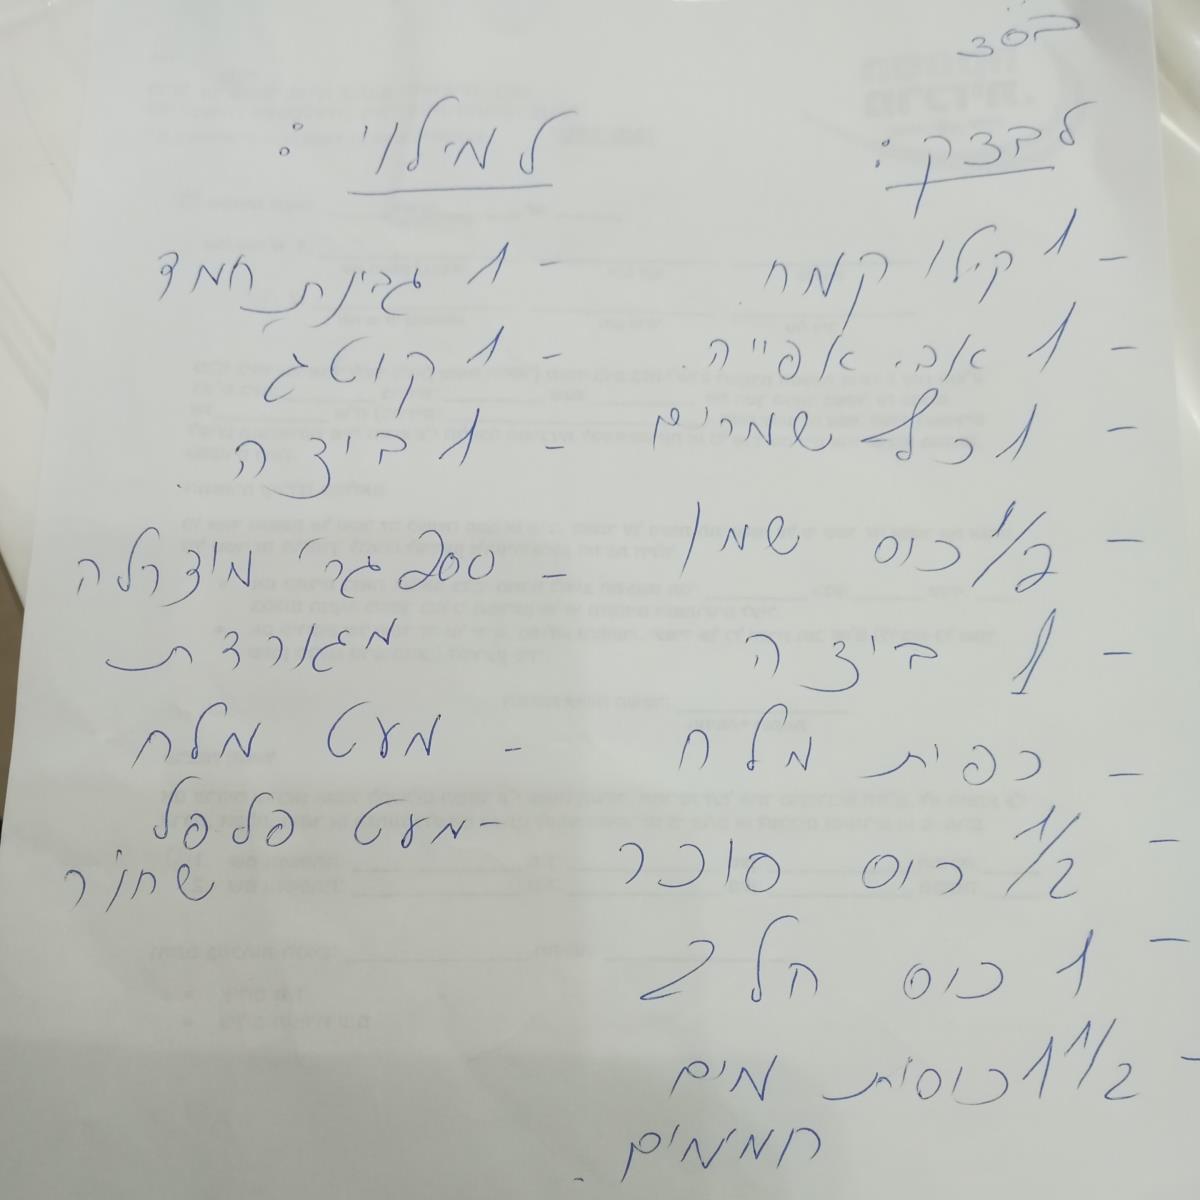 בס"ד
לבצק:
- 1 קילו קמח
- 1 אב. אפייה.
- 1 כף שמרים
- 1/2 כוס שמן
- 1 ביצה
- כפית מלח
- 1/2 כוס סוכר
- 1 כוס חלב
- 1 1/2 כוסות מים
חמימים.
למילוי:
- 1 גבינת חמד
- 1 קוטג
- 1 ביצה.
- 200 גר' מוצרלה
מגורדת
- מעט מלח
- מעט פלפל
שחור